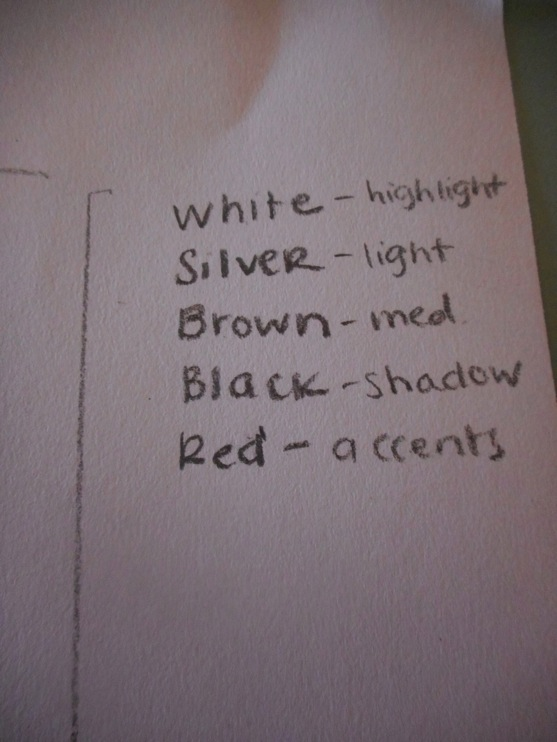 White - highlight
Silver - light
Brown - med.
Black - shadow
Red - accents